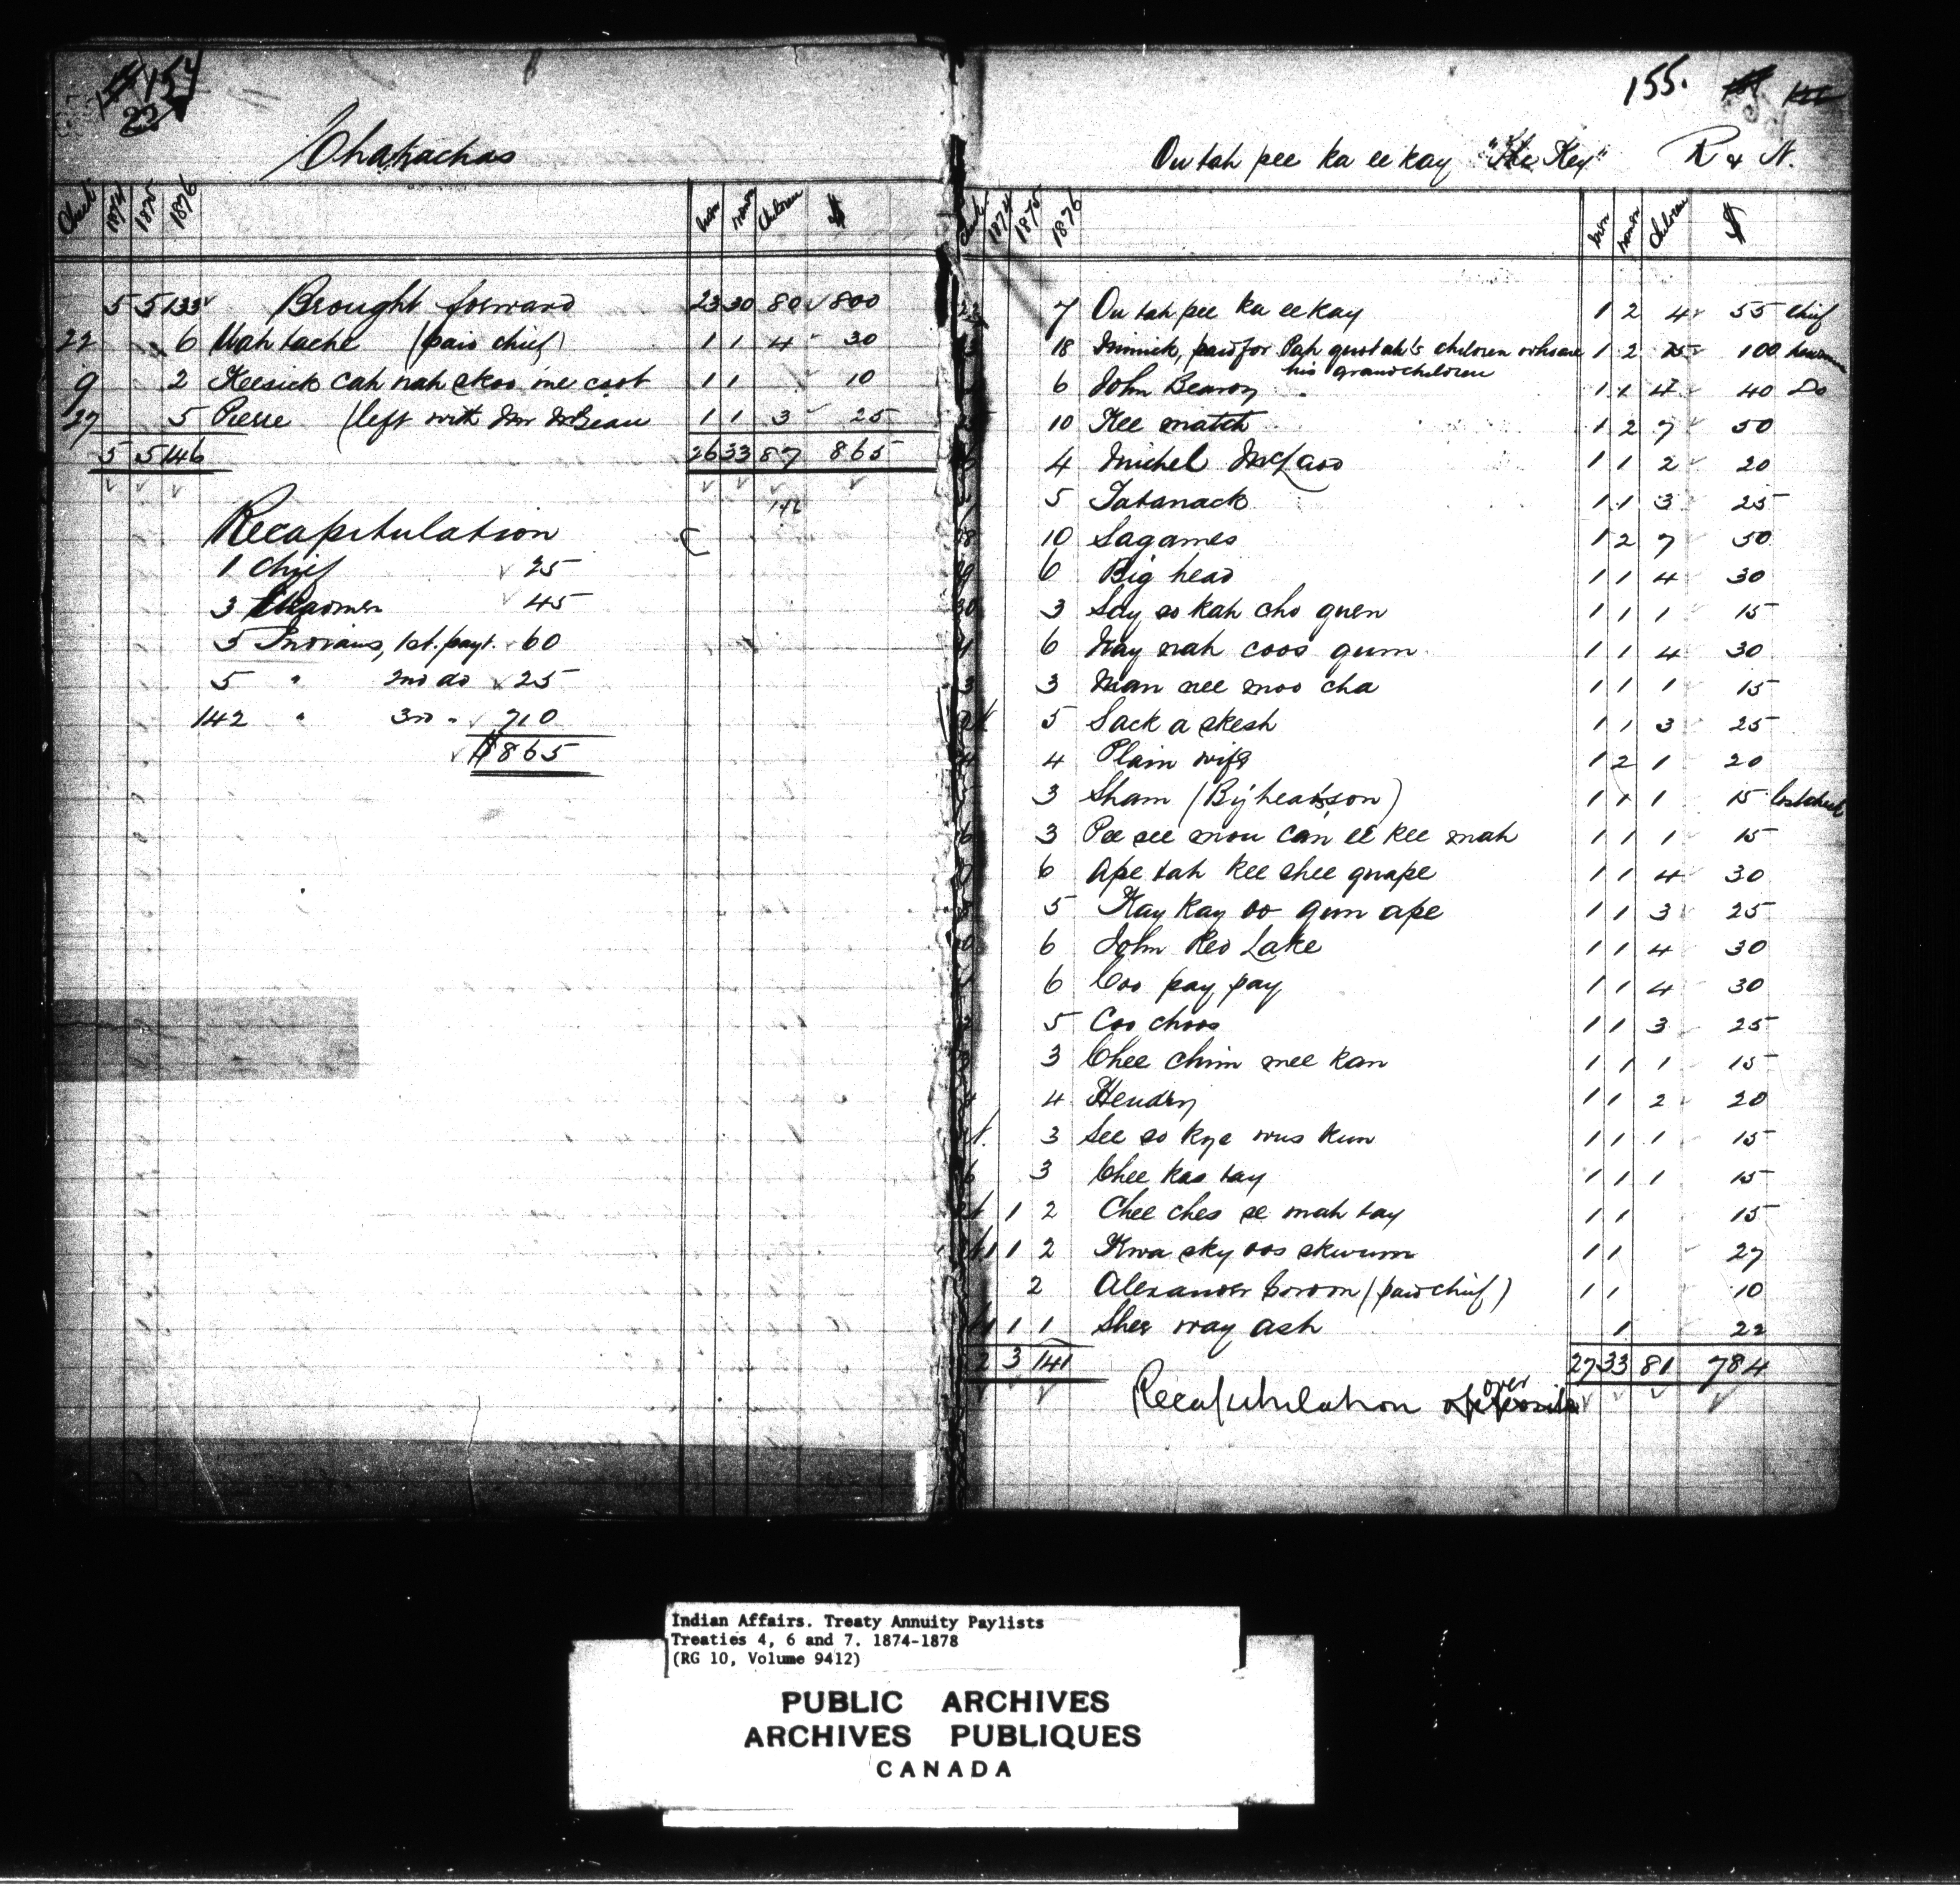 154
22
Chakachas
Check 1874 1875 1876 men women children $
5 5 133 Brought forward 23 30 80 800
22 6 Mah tache (paid chief) 1 1 4 30
9 2 Keesick cah nah skoo me coot 1 1 10
27 5 Pierre (left with Mr McBeau 1 1 3 25
5 5 146 26 33 87 865
146
Recapitulation
1 Chief 25
3 Headmen 45
5 Indians, 1st. payt. 60
5 " 2nd do 25
142 " 3rd " 710
$865
155.
Ou tah pee ka ee kay "The Key" R & N.
Check 1874 1875 1876 men women children $
7 Ou tah pee ka ee kay 1 2 4 55 Chief
18 Minnick, paid for Pah quotah's children who are 1 2 15 100
his grandchildren
6 John Beardy 1 1 4 40 Do
10 Kee match 1 2 7 50
4 Michel McLaod 1 1 2 20
5 Tabanack 1 1 3 25
10 Sagames 1 2 7 50
6 Big head 1 1 4 30
30 3 Say so kah cho quen 1 1 1 15
6 Kay nah coos gum 1 1 4 30
3 Man nee moo cha 1 1 1 15
5 Sack a skesh 1 1 3 25
4 Plain wife 1 2 1 20
3 Sham (Bighead's son) 1 1 1 15 lost check
3 Pee see mou can ee kee mah 1 1 1 15
6 Ape tah kee shee quape 1 1 4 30
5 Kay kay oo gum ape 1 1 3 25
6 John Red Lake 1 1 4 30
6 Coo pay pay 1 1 4 30
5 Coo choos 1 1 3 25
3 Chee chim mee kan 1 1 1 15
4 Hendry 1 1 2 20
3 See so kye wus kun 1 1 1 15
3 Chee kas tay 1 1 1 15
1 2 Chee ches se mah tay 1 1 15
1 1 2 Kwa sky oos skwum 1 1 27
2 Alexander Gordon (paid chief) 1 1 10
1 1 1 Shee way ash 1 22
2 3 141 27 33 81 784
Recapitulation over
Indian Affairs. Treaty Annuity Paylists
Treaties 4, 6 and 7. 1874-1878
(RG 10, Volume 9412)
PUBLIC ARCHIVES
ARCHIVES PUBLIQUES
CANADA